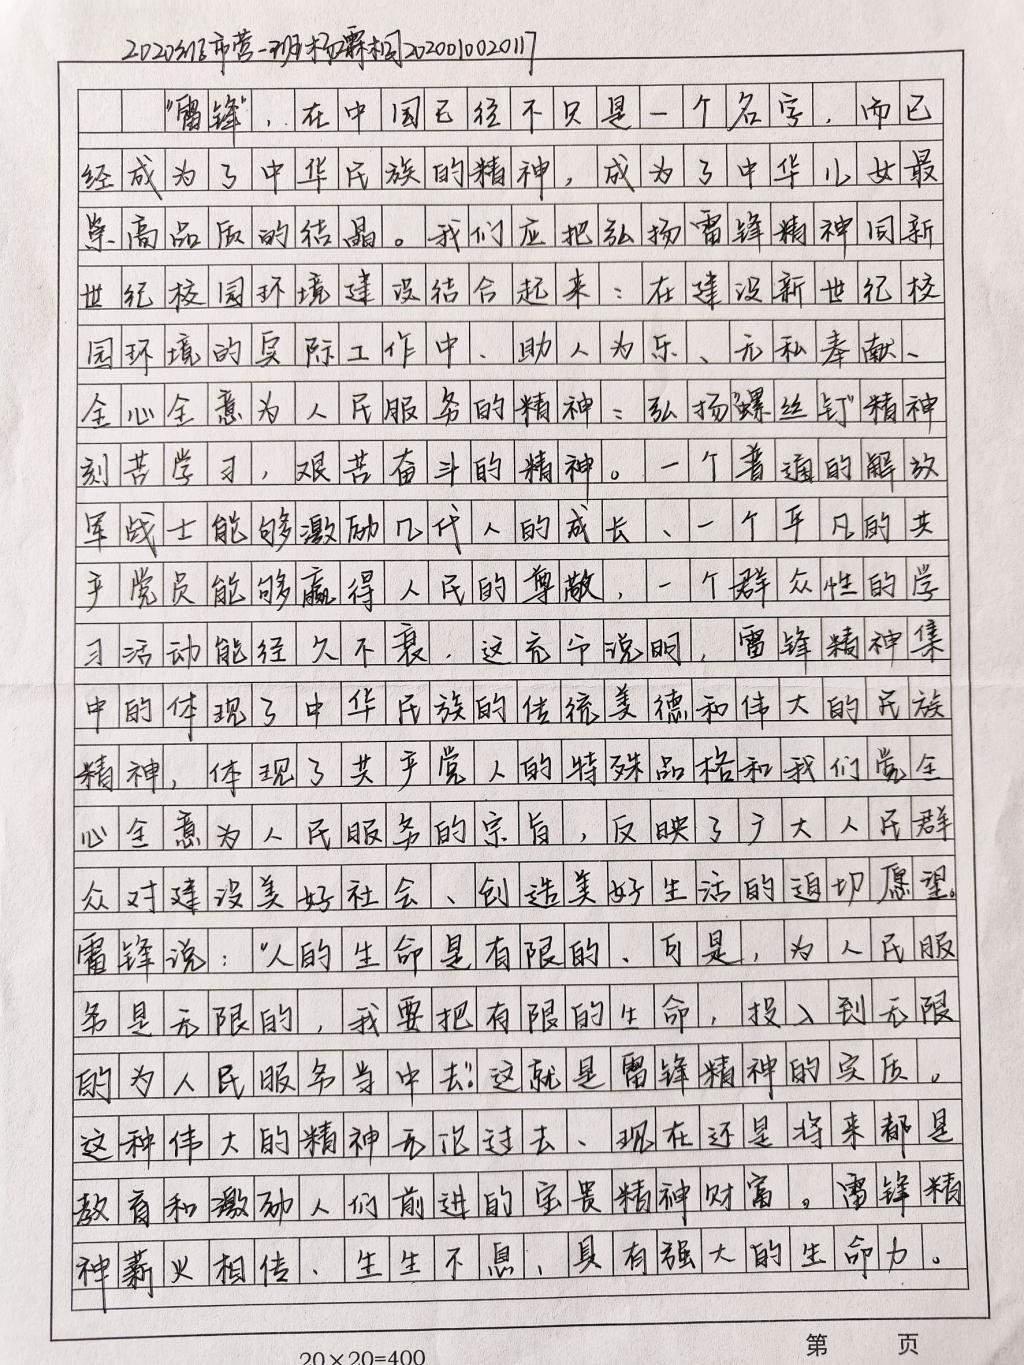 2020级市营一班杨霖桐2020010020117
“雷锋”，在中国已经不只是一个名字，而已
经成为了中华民族的精神，成为了中华儿女最
崇高品质的结晶。我们应把弘扬雷锋精神同新
世纪校园环境建设结合起来：在建设新世纪校
园环境的实际工作中、助人为乐、无私奉献、
全心全意为人民服务的精神：弘扬“螺丝钉”精神
刻苦学习，艰苦奋斗的精神。一个普通的解放
军战士能够激励几代人的成长、一个平凡的共
产党员能够赢得人民的尊敬，一个群众性的学
习活动能经久不衰．这充分说明，雷锋精神集
中的体现了中华民族的传统美德和伟大的民族
精神，体现了共产党人的特殊品格和我们党全
心全意为人民服务的宗旨，反映了广大人民群
众对建设美好社会、创造美好生活的迫切愿望。
雷锋说：“人的生命是有限的、可是，为人民服
务是无限的，我要把有限的生命，投入到无限
的为人民服务当中去”。这就是雷锋精神的实质。
这种伟大的精神无论过去、现在还是将来都是
教育和激励人们前进的宝贵精神财富。雷锋精
神薪火相传、生生不息、具有强大的生命力。
20×20=400
第 页